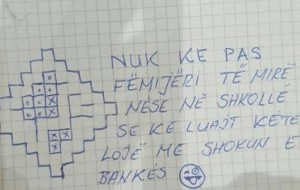 NUK KE PAS
FËMIJËRI TË MIRË
NËSE NË SHKOLLË
SE KE LUAJT KËTË
LOJË ME SHOKUN E
BANKËS